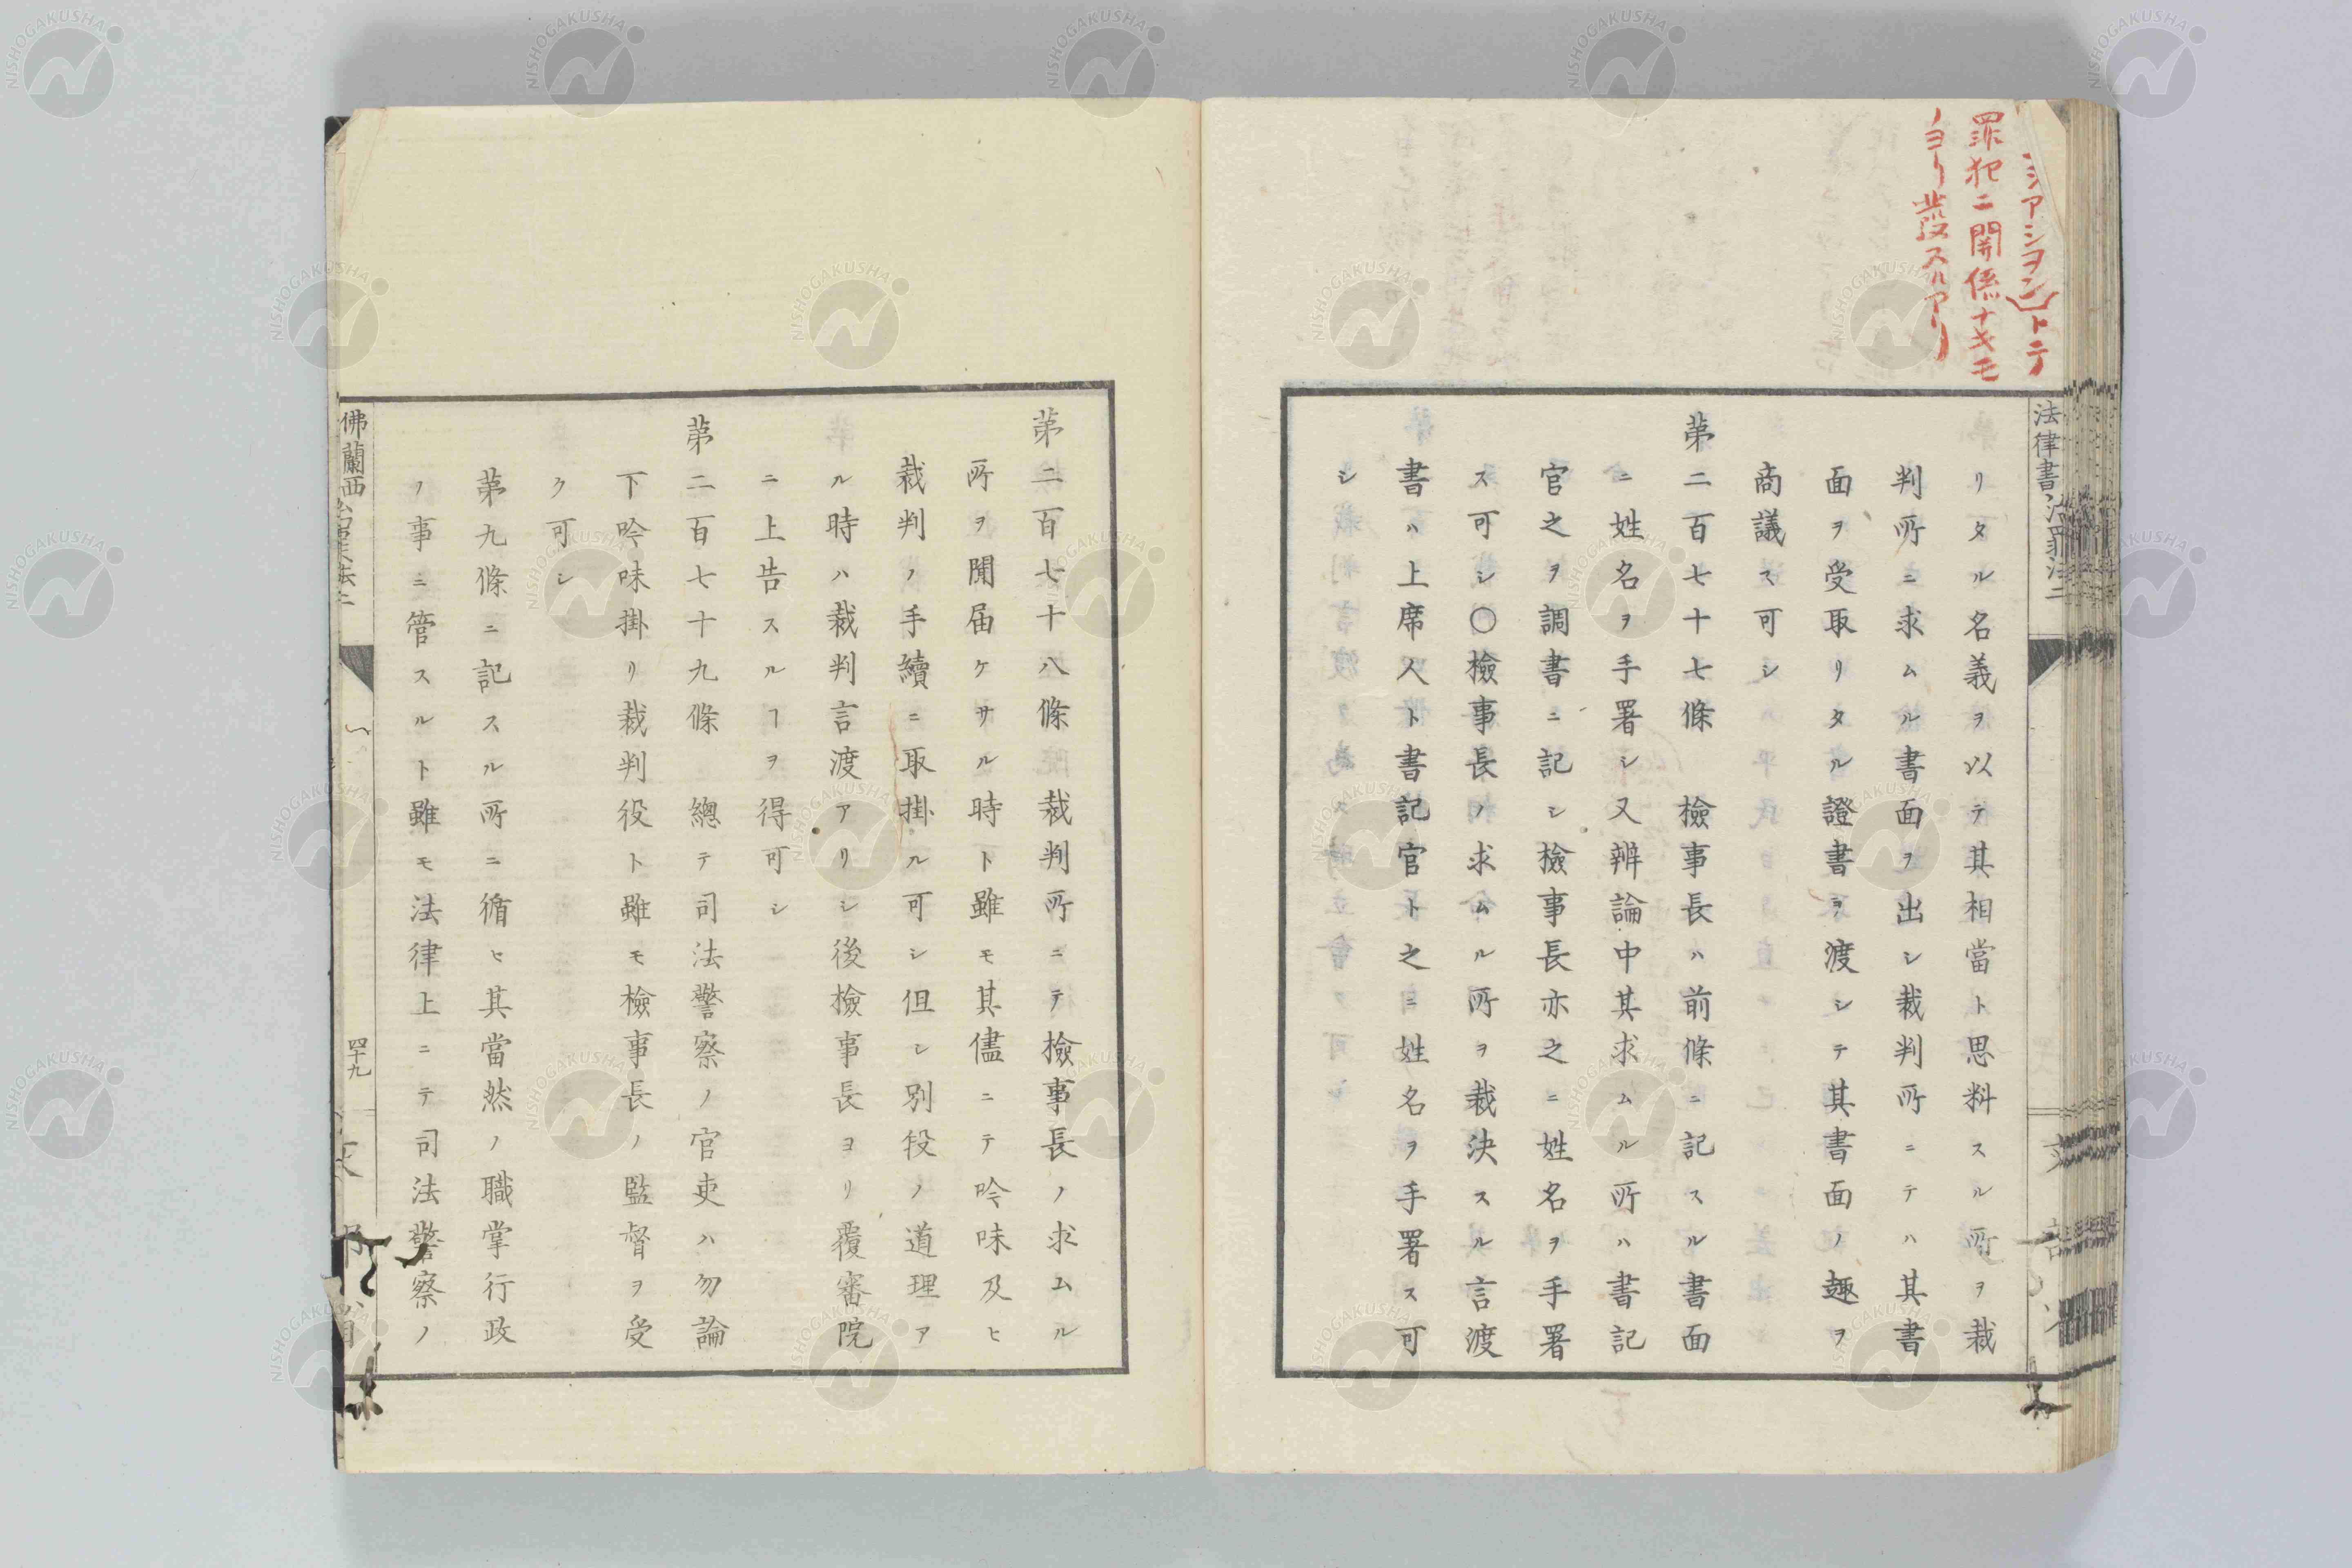 ミシアシヲン」トテ
罪犯ニ関係ナキモ
ノヨリ発スルアリ
法律書治罪法二
リタル名義ヲ以テ其相當ト思料スル所ヲ裁
判所ニ求ムル書面ヲ出シ裁判所ニテハ其書
面ヲ受取リタル證書ヲ渡シテ其書面ノ趣ヲ
商議ス可シ
第二百七十七條 檢事長ハ前條ニ記スル書面
ニ姓名ヲ手署シ又辨論中其求ムル所ハ書記
官之ヲ調書ニ記シ檢事長亦之ニ姓名ヲ手署
ス可シ〇檢事長ノ求ムル所ヲ裁決スル言渡
書ハ上席人ト書記官ト之ニ姓名ヲ手署ス可
シ
第二百七十八條 裁判所ニテ檢事長ノ求ムル
所ヲ聞届ケサル時ト雖モ其儘ニテ吟味及ヒ
裁判ノ手續ニ取掛ル可シ但シ別段ノ道理ア
ル時ハ裁判言渡アリシ後檢事長ヨリ覆審院
ニ上告スルヿヲ得可シ
第二百七十九條 總テ司法警察ノ官吏ハ勿論
下吟味掛リ裁判役ト雖モ檢事長ノ監督ヲ受
ク可シ
第九條ニ記スル所ニ循ヒ其當然ノ職掌行政
ノ事ニ管スルト雖モ法律上ニテ司法警察ノ
佛蘭西治罪法二
四十九
NISHOGAKUSHA